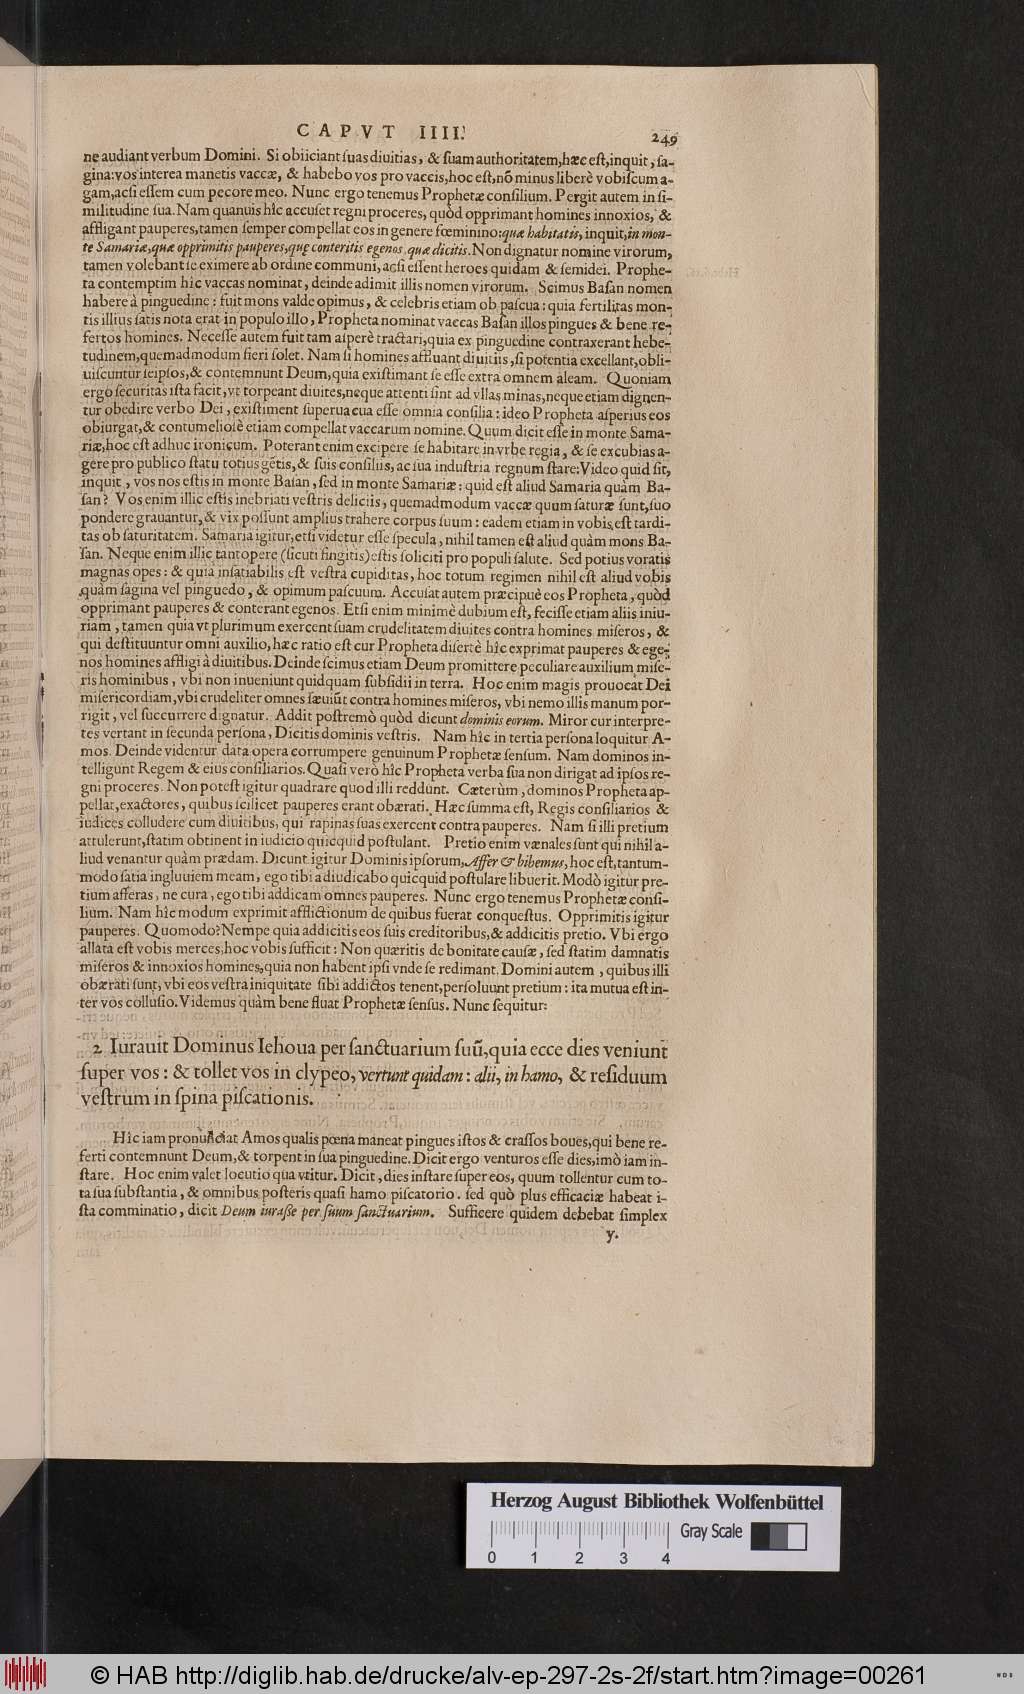 CAPVT IIII.
249
ne audiant verbum Domini. Si obiiciant ſuas diuitias, & ſuam authoritatem, hæc eſt, inquit, ſa-
gina: vos interea manetis vaccæ, & habebo vos pro vaccis, hoc eſt, nõ minus liberè vobiſcum a-
gam, acſi eſſem cum pecore meo. Nunc ergo tenemus Prophetæ conſilium. Pergit autem in ſi-
militudine ſua. Nam quanuis hîc accuſet regni proceres, quòd opprimant homines innoxios, &
affligant pauperes, tamen ſemper compellat eos in genere fœminino: quæ habitatis, inquit, in mon-
te Samariæ, quæ opprimitis pauperes, quę conteritis egenos, quæ dicitis. Non dignatur nomine virorum,
tamen volebant ſe eximere ab ordine communi, acſi eſſent heroes quidam & ſemidei. Prophe-
ta contemptim hîc vaccas nominat, deinde adimit illis nomen virorum. Scimus Baſan nomen
habere à pinguedine: fuit mons valde opimus, & celebris etiam ob paſcua: quia fertilitas mon-
tis illius ſatis nota erat in populo illo, Propheta nominat vaccas Baſan illos pingues & bene re-
fertos homines. Neceſſe autem fuit tam aſperè tractari, quia ex pinguedine contraxerant hebe-
tudinem, quemadmodum fieri ſolet. Nam ſi homines affluant diuitiis, ſi potentia excellant, obli-
uiſcuntur ſeipſos, & contemnunt Deum, quia exiſtimant ſe eſſe extra omnem aleam. Quoniam
ergo ſecuritas iſta facit, vt torpeant diuites, neque attenti ſint ad vllas minas, neque etiam dignen-
tur obedire verbo Dei, exiſtiment ſuperuacua eſſe omnia conſilia: ideo Propheta aſperius eos
obiurgat, & contumelioſè etiam compellat vaccarum nomine. Quum dicit eſſe in monte Sama-
riæ, hoc eſt adhuc ironicum. Poterant enim excipere ſe habitare in vrbe regia, & ſe excubias a-
gere pro publico ſtatu totius gẽtis, & ſuis conſiliis, ac ſua induſtria regnum ſtare: Video quid ſit,
inquit, vos nos eſtis in monte Baſan, ſed in monte Samariæ: quid eſt aliud Samaria quàm Ba-
ſan? Vos enim illic eſtis inebriati veſtris deliciis, quemadmodum vaccæ quum ſaturæ ſunt, ſuo
pondere grauantur, & vix poſſunt amplius trahere corpus ſuum: eadem etiam in vobis eſt tardi-
tas ob ſaturitatem. Samaria igitur, etſi videtur eſſe ſpecula, nihil tamen eſt aliud quàm mons Ba-
ſan. Neque enim illic tantopere (ſicuti fingitis) eſtis ſoliciti pro populi ſalute. Sed potius voratis
magnas opes: & quia inſatiabilis eſt veſtra cupiditas, hoc totum regimen nihil eſt aliud vobis
quàm ſagina vel pinguedo, & opimum paſcuum. Accuſat autem præcipuè eos Propheta, quòd
opprimant pauperes & conterant egenos. Etſi enim minimè dubium eſt, feciſſe etiam aliis iniu-
riam, tamen quia vt plurimum exercent ſuam crudelitatem diuites contra homines miſeros, &
qui deſtituuntur omni auxilio, hæc ratio eſt cur Propheta diſertè hîc exprimat pauperes & ege-
nos homines affligi à diuitibus. Deinde ſcimus etiam Deum promittere peculiare auxilium miſe-
ris hominibus, vbi non inueniunt quidquam ſubſidii in terra. Hoc enim magis prouocat Dei
miſericordiam, vbi crudeliter omnes ſæuiũt contra homines miſeros, vbi nemo illis manum por-
rigit, vel ſuccurrere dignatur. Addit poſtremò quòd dicunt dominis eorum. Miror cur interpre-
tes vertant in ſecunda perſona, Dicitis dominis veſtris. Nam hîc in tertia perſona loquitur A-
mos. Deinde videntur data opera corrumpere genuinum Prophetæ ſenſum. Nam dominos in-
telligunt Regem & eius conſiliarios. Quaſi verò hîc Propheta verba ſua non dirigat ad ipſos re-
gni proceres. Non poteſt igitur quadrare quod illi reddunt. Cæterùm, dominos Propheta ap-
pellat, exactores, quibus ſcilicet pauperes erant obærati. Hæc ſumma eſt, Regis conſiliarios &
iudices colludere cum diuitibus, qui rapinas ſuas exercent contra pauperes. Nam ſi illi pretium
attulerunt, ſtatim obtinent in iudicio quicquid poſtulant. Pretio enim vænales ſunt qui nihil a-
liud venantur quàm prædam. Dicunt igitur Dominis ipſorum, Affer & bibemus, hoc eſt, tantum-
modo ſatia ingluuiem meam, ego tibi adiudicabo quicquid poſtulare libuerit. Modò igitur pre-
tium afferas, ne cura, ego tibi addicam omnes pauperes. Nunc ergo tenemus Prophetæ conſi-
lium. Nam hîc modum exprimit afflictionum de quibus fuerat conqueſtus. Opprimitis igitur
pauperes. Quomodo? Nempe quia addicitis eos ſuis creditoribus, & addicitis pretio. Vbi ergo
allata eſt vobis merces, hoc vobis ſufficit: Non quæritis de bonitate cauſæ, ſed ſtatim damnatis
miſeros & innoxios homines, quia non habent ipſi vnde ſe redimant. Domini autem, quibus illi
obærati ſunt, vbi eos veſtra iniquitate ſibi addictos tenent, perſoluunt pretium: ita mutua eſt in-
ter vos colluſio. Videmus quàm bene fluat Prophetæ ſenſus. Nunc ſequitur:
2 Iurauit Dominus Iehoua per ſanctuarium ſuũ, quia ecce dies veniunt
ſuper vos: & tollet vos in clypeo, vertunt quidam: alii, in hamo, & reſiduum
veſtrum in ſpina piſcationis.
Hîc iam pronunciat Amos qualis pœna maneat pingues iſtos & craſſos boues, qui bene re-
ferti contemnunt Deum, & torpent in ſua pinguedine. Dicit ergo venturos eſſe dies, imò iam in-
ſtare. Hoc enim valet locutio qua vtitur. Dicit, dies inſtare ſuper eos, quum tollentur cum to-
ta ſua ſubſtantia, & omnibus poſteris quaſi hamo piſcatorio. ſed quò plus efficaciæ habeat i-
ſta comminatio, dicit Deum iuraſſe per ſuum ſanctuarium. Sufficere quidem debebat ſimplex
y.
Herzog August Bibliothek Wolfenbüttel
Gray Scale
0 1 2 3 4
© HAB http://diglib.hab.de/drucke/alv-ep-297-2s-2f/start.htm?image=00261